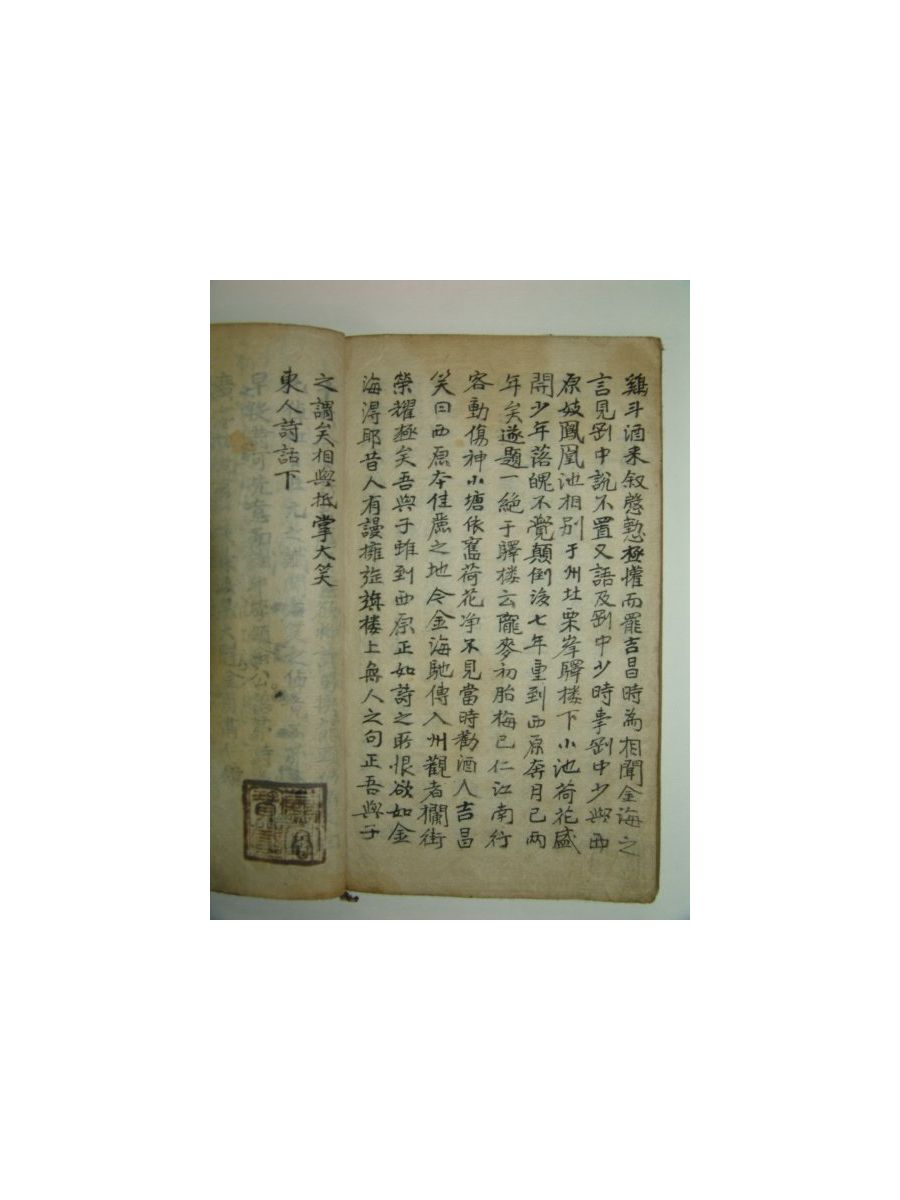 鷄斗酒来叙慇懃極懽而罷吉昌時為相聞金海之
言見剛中說不置又語及剛中少時事剛中少與西
原妓鳳凰池相別于州北栗峯驛楼下小池荷花盛
開少年落魄不覺顛倒後七年重到西原奔月已两
年矣遂題一絶于驛楼云隴麥初胎梅已仁江南行
客動傷神小塘依舊荷花净不見當時勸酒人吉昌
笑曰西原本佳麗之地今金海馳傳入州觀者欄街
榮耀極矣吾與子雖到西原正如詩之所恨欲如金
海淂耶昔人有謾擁旌旗楼上無人之句正吾與子
之謂矣相與抵掌大笑
東人詩話下